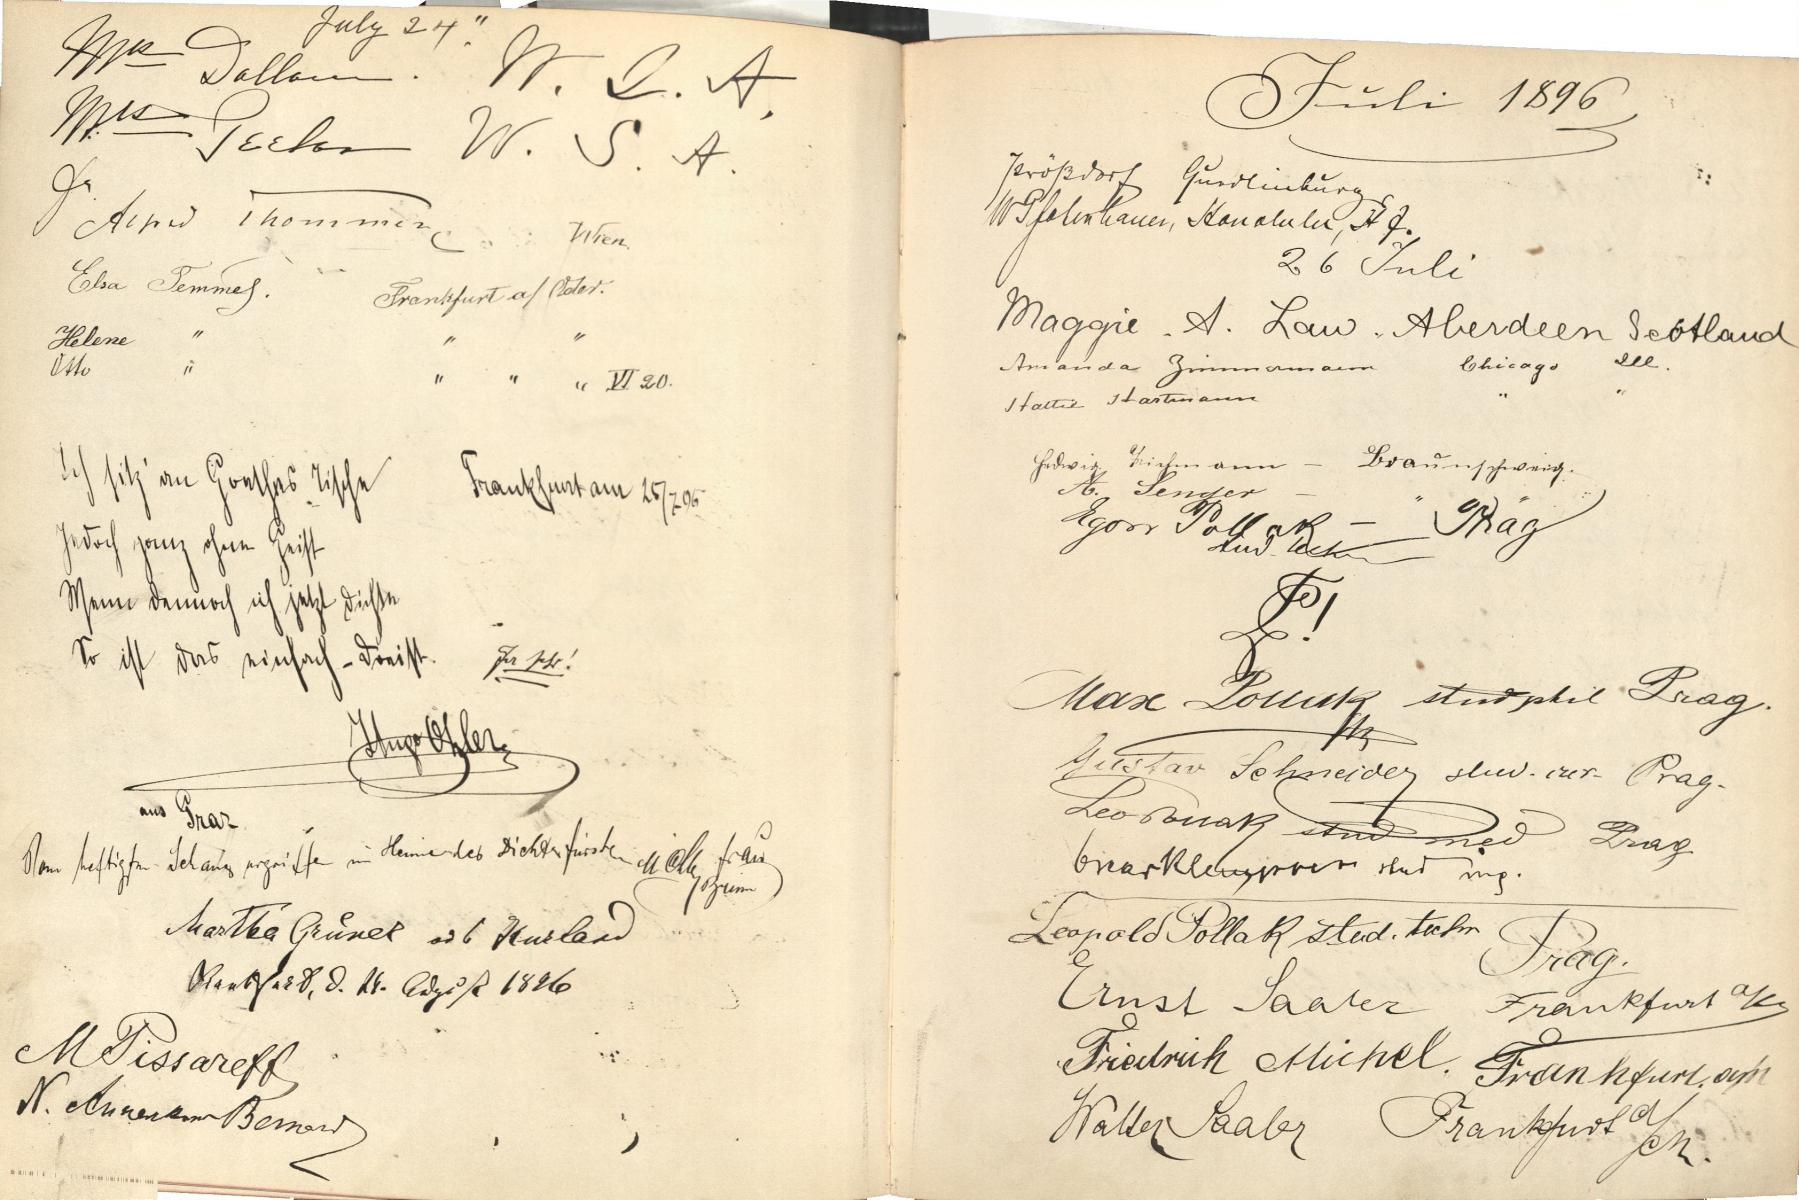 July 24."
Mrs Dallam. W. S. A.
Mrs Peeler W. S. A.
Dr.
Alfred Thommen Wien
Elsa Temmes. Frankfurt a/ Oder.
Helene " " "
Otto " " " " VI 20.
Ich sitz' an Goethes Tische Frankfurt am 25/7 96
Jedoch ganz ohne Geist
Wenn dennoch ich jetzt dichte
So ist das einfach - dreist.
Hugo
aus Graz
Vom heftigsten Schauer ergriffen im Heime des Dichterfürsten Frau
Martha Grüner aus Kurland
Frankfurt, d. August 1896
M Pissareff
N. Bernard
Juli 1896
Prößdorf Quedlinburg
W Pfotenhauer, Honolulu, H. J.
26 Juli
Maggie. A. Law. Aberdeen Scotland
Amanda Zimmermann Chicago Ill.
Hattie Hartmann " "
Hedwig Teichmann - Braunschweig.
A. Senger - " "
Egon Pollak - Prag
stud. techn
Max Pollak stud phil Prag.
Gustav Schneider stud. iur. Prag.
Leo Pollak stud med Prag
stud ing.
Leopold Pollak stud. techn Prag.
Ernst Saaler Frankfurt a/M
Friedrich Michel. Frankfurt. a/M
Walter Saaler Frankfurt a/M.